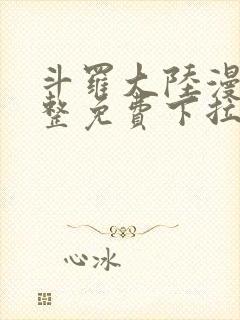 斗羅大陸漫
整免費下拉
心冰